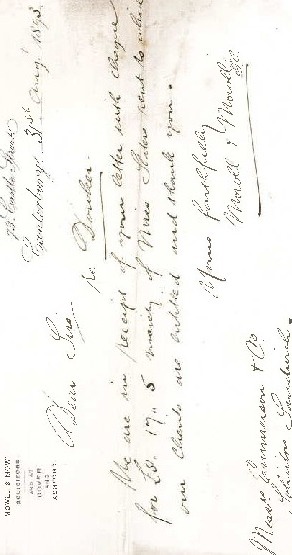 MOWLL & MOWLL
SOLICITORS
AND AT
DOVER
AND
ASHFORD
Castle Street
Canterbury, 31st Aug. 1893
Dear Sirs
re
We are in receipt of your letter with cheque
for £8. 17. 5 moiety of Miss
our clients are entitled and thank you.
Yours faithfully
Mowll & Mowll
Messrs. & Co
Solicitors